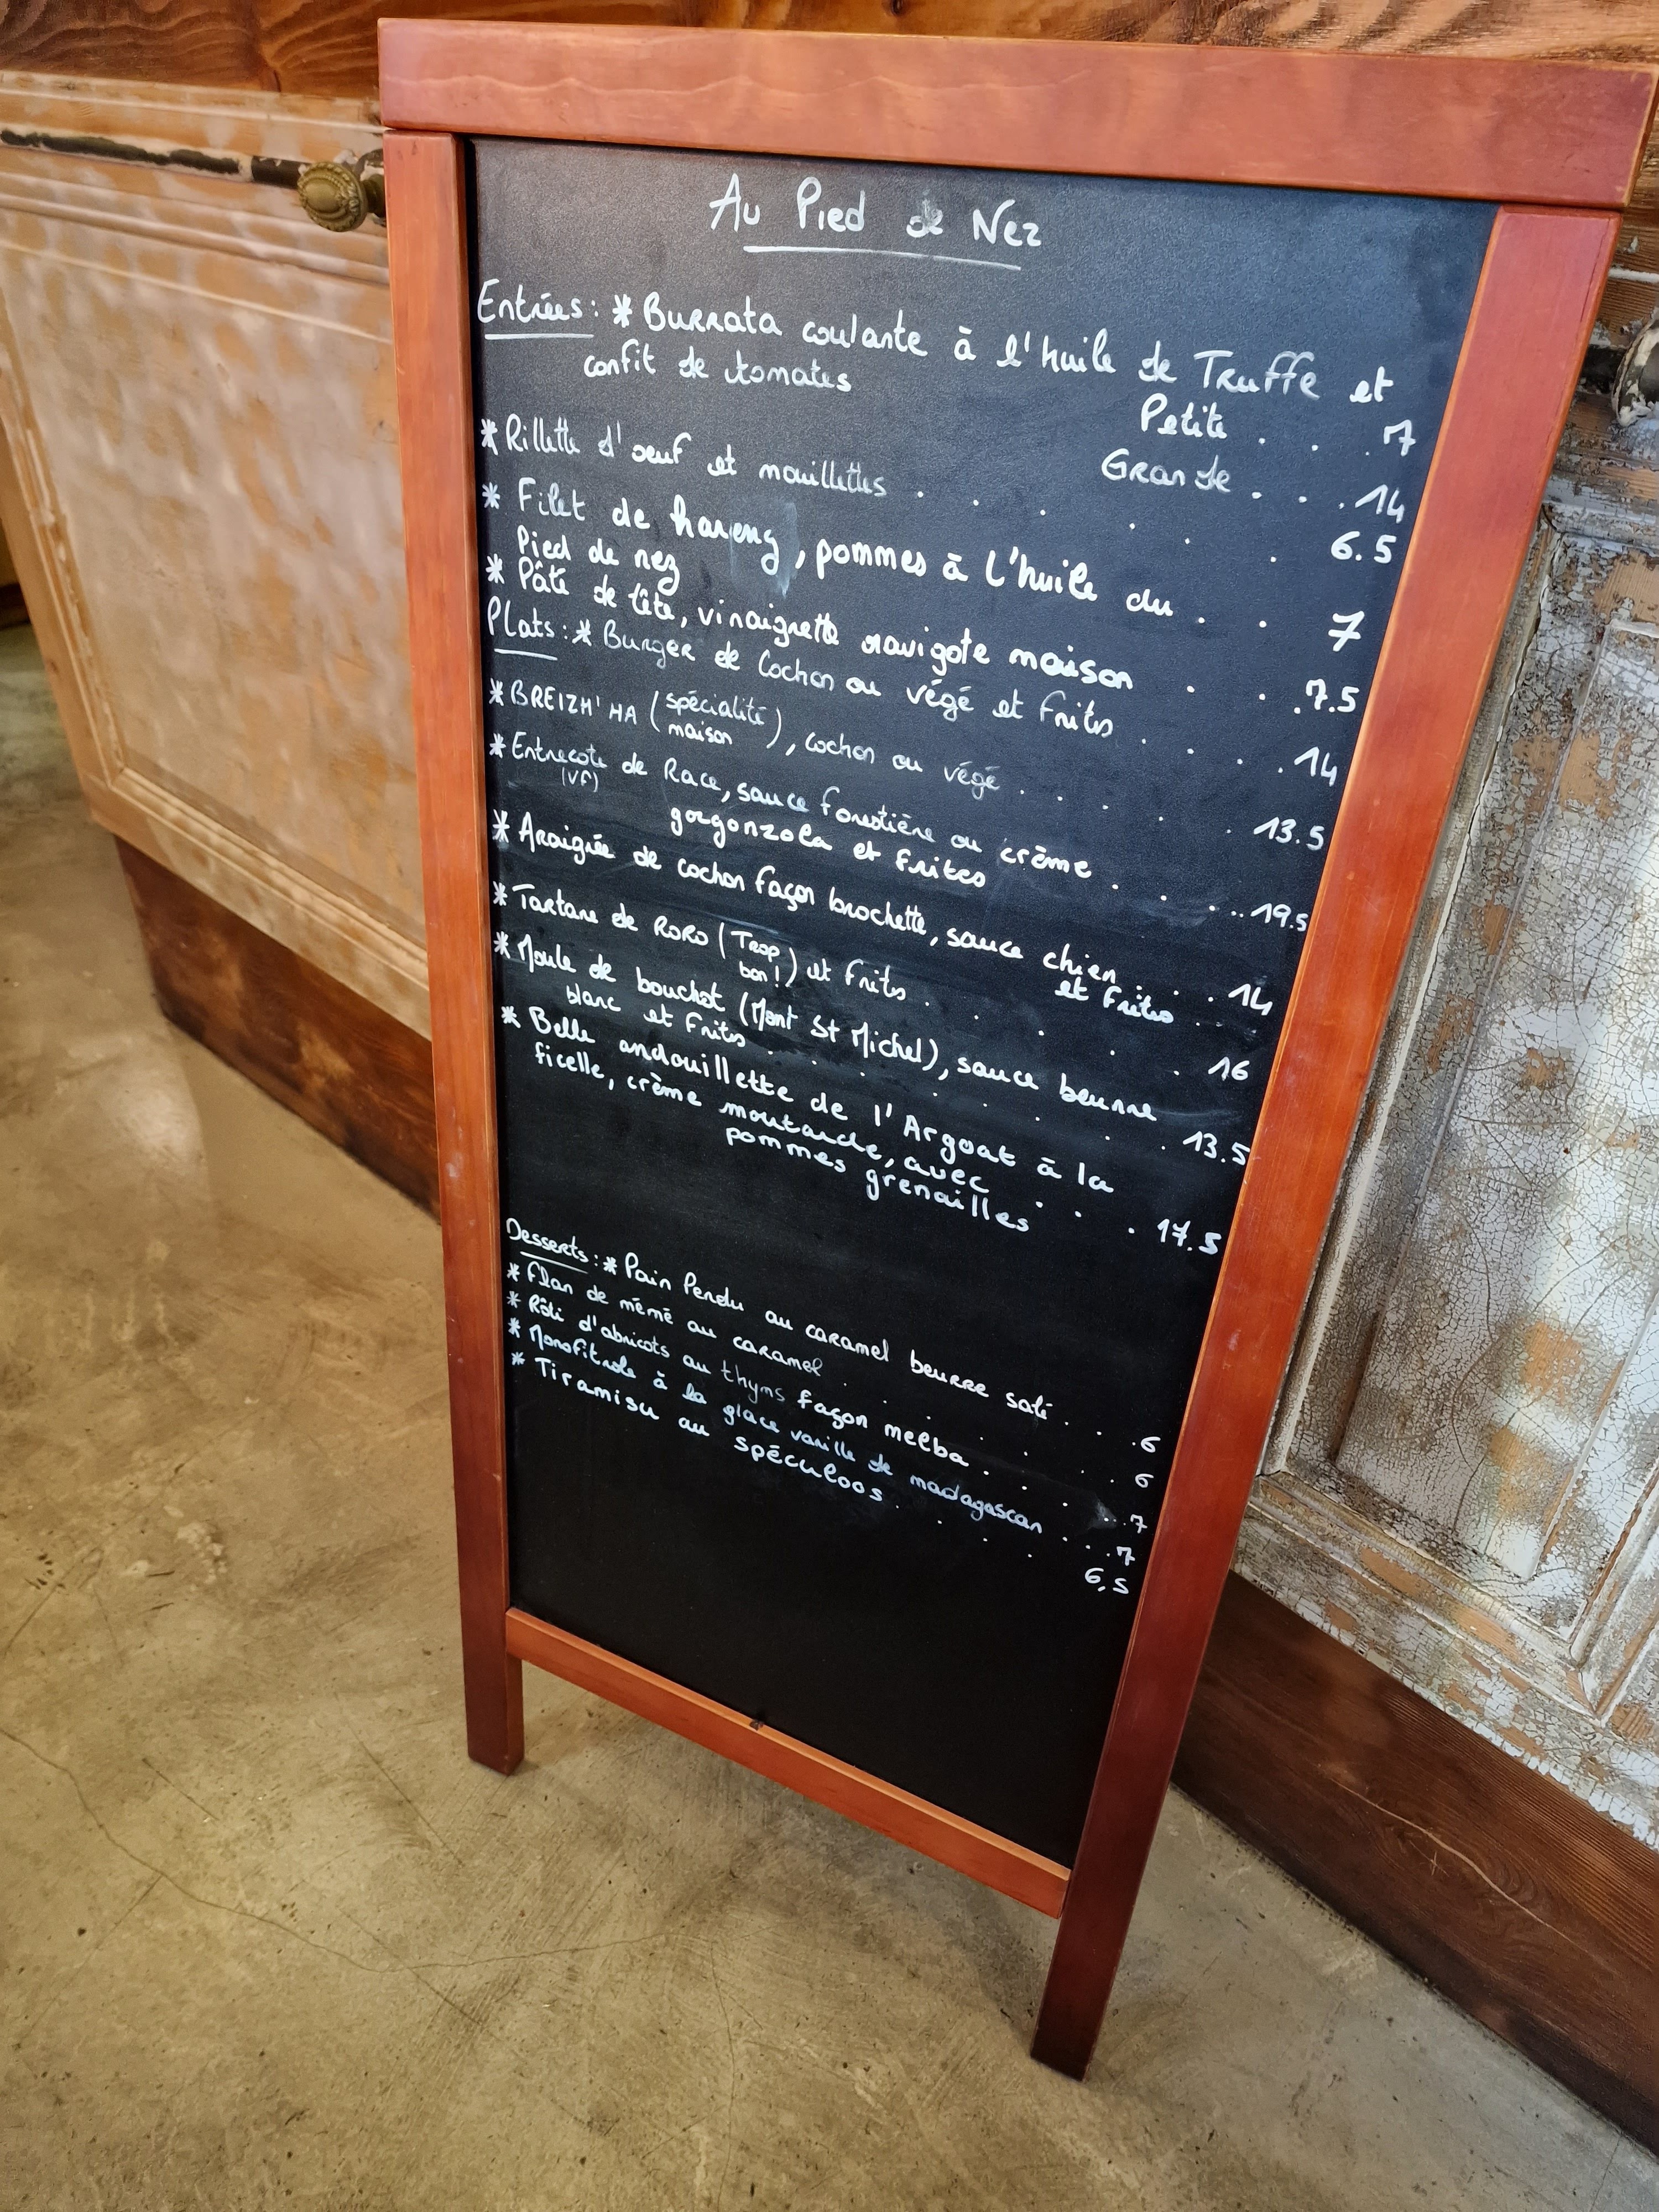 Au Pied de Nez
Entrées : * Burrata coulante à l'huile de Truffe et
confit de tomates
Petite . . . 7
Grande . . . 14
* Rillette d'oeuf et mouillettes . . . . . . 6.5
* Filet de hareng, pommes à l'huile du . . 7
Pied de nez
* Pâté de tête, vinaigrette ravigote maison . . 7.5
Plats : * Burger de Cochon ou végé et frites . . . . 14
* BREIZH'HA (spécialité maison), cochon ou végé . . . . . 13.5
* Entrecote de Race, sauce forestière ou crème . . . . 19.5
(VF) gorgonzola et frites
* Araignée de cochon façon brochette, sauce chien . . . 14
et frites . . .
* Tartare de RORO (Trop bon !) et frites . . . . . 16
* Moule de bouchot (Mont St Michel), sauce beurre
blanc et frites . . . . . . . 13.5
* Belle andouillette de l'Argoat à la
ficelle, crème moutarde, avec . . . . 17.5
pommes grenailles
Desserts : * Pain Perdu au caramel beurre salé . . . 6
* Flan de mémé au caramel . . . . . . . 6
* Rôti d'abricots au thyms façon melba . . . . . 7
* Monofitrole à la glace vanille de madagascar . . . . 7
* Tiramisu au spéculoos . . . . 6,5